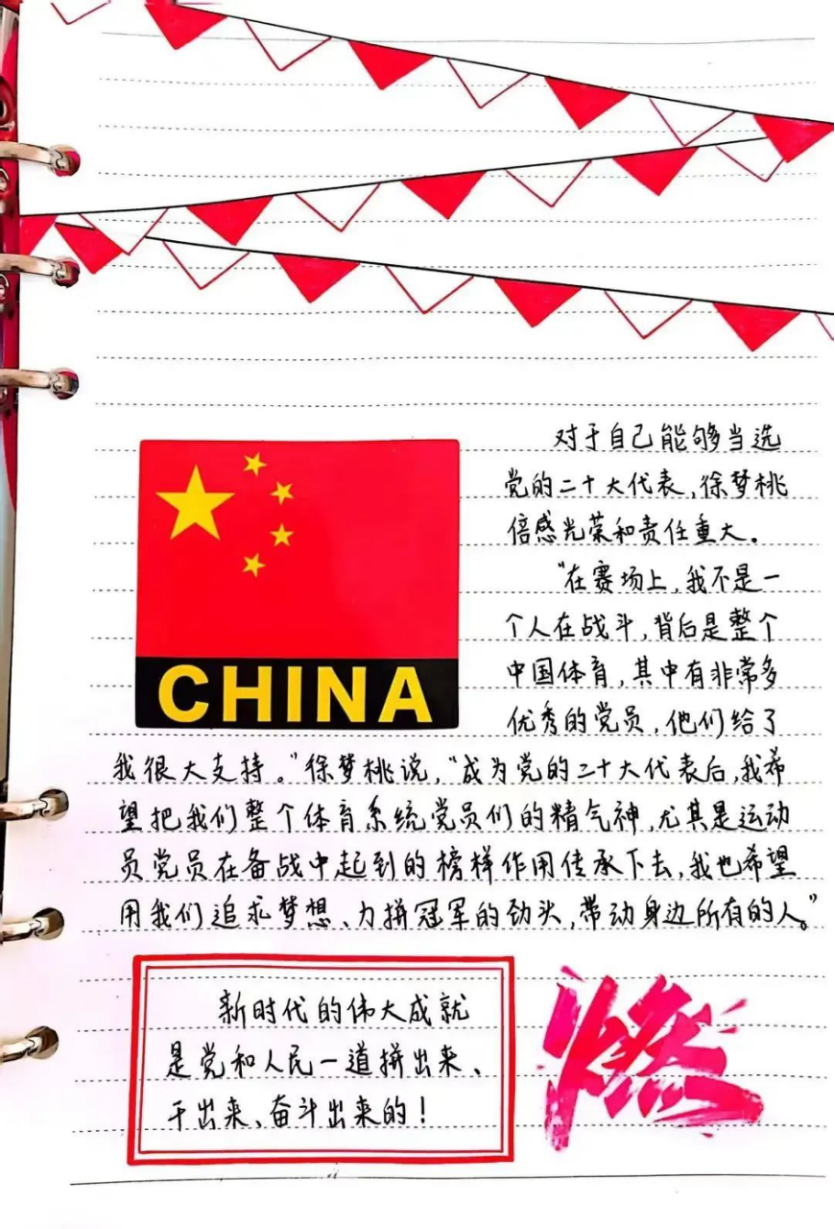 对于自己能够当选
党的二十大代表,徐梦桃
倍感光荣和责任重大。
"在赛场上,我不是一
个人在战斗,背后是整个
中国体育,其中有非常多
优秀的党员,他们给了
CHINA
我很大支持。"徐梦桃说,"成为党的二十大代表后,我希
望把我们整个体育系统党员们的精气神,尤其是运动
员党员在备战中起到的榜样作用传承下去,我也希望
用我们追求梦想、力拼冠军的劲头,带动身边所有的人。"
新时代的伟大成就
是党和人民一道拼出来、
干出来、奋斗出来的!
燃